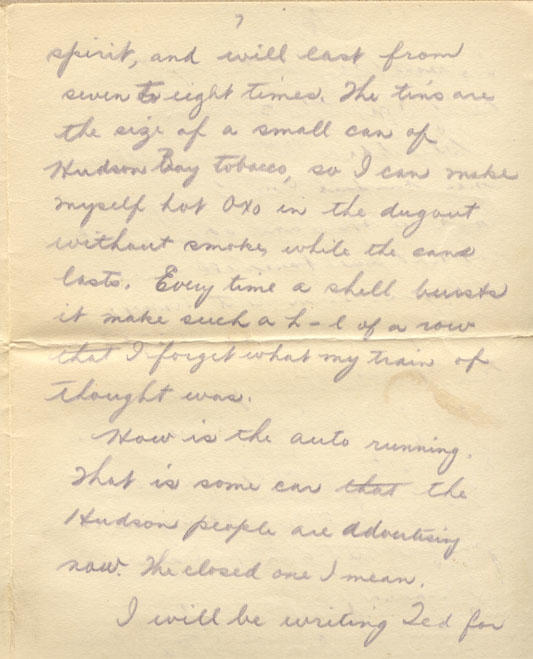 7
spirit, and will last from
seven to eight times. The tins are
the size of a small can of
Hudson Bay tobacco, so I can make
myself hot Oxo in the dugout
without smoke, while the cans
lasts. Every time a shell bursts
it make such a h-l of a row
that I forget what my train of
thought was.
How is the auto running.
That is some car that the
Hudson people are advertising
now. The closed one I mean.
I will be writing Ted for